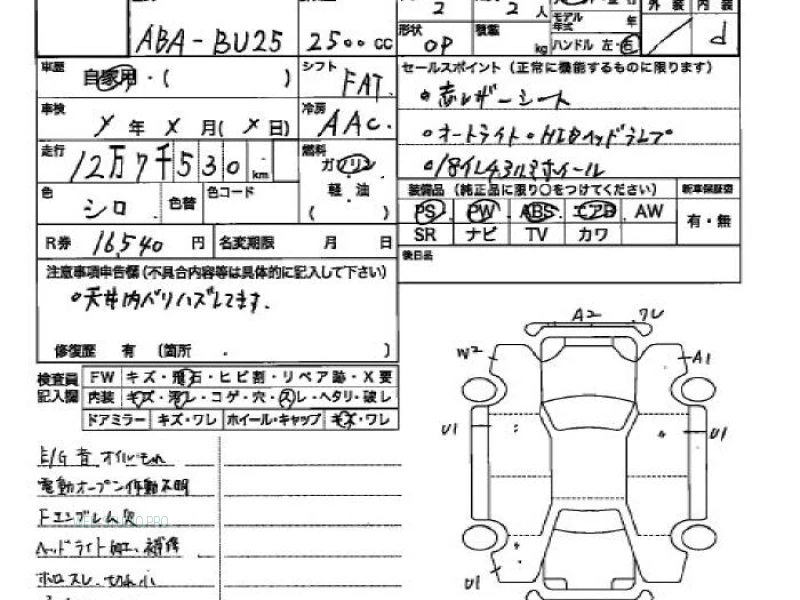 2 2 人 モデル年式 年 外装 内装
ABA-BU25 2500 cc 形状 OP 積載 kg ハンドル 左・右 d
車歴 自家用・( ) シフト FAT セールスポイント (正常に機能するものに限ります)
車検 年 X 月( X 日) 冷房 AAC ・赤レザーシート
・オートライト・HIDヘッドランプ
走行 12万7千530 km 燃料 ガソリン 軽・油 ( ) ・18インチアルミホイール
色 シロ 色替 色コード 装備品 (純正品に限り○をつけてください) 新車保証書
PS PW ABS エアB AW 有・無
R券 16,540 円 名変期限 月 日 SR ナビ TV カワ
注意事項申告欄(不具合内容等は具体的に記入して下さい) 後日品
・天井内バリハズレてます.
修復歴 有 (箇所 )
検査員記入欄 FW キズ・飛石・ヒビ割・リペア跡・X要
内装 キズ・汚レ・コゲ・穴・スレ・ヘタリ・破レ
ドアミラー キズ・ワレ ホイール・キャップ キズ・ワレ
A2 ワレ
W2 A1
U1 U1
E/G音 オイルもれ
電動オープン作動不明
Fエンブレム欠
ヘッドライト
U1